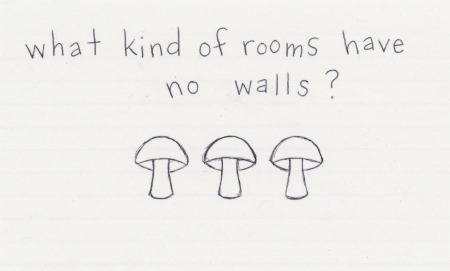 what kind of rooms have
no walls?